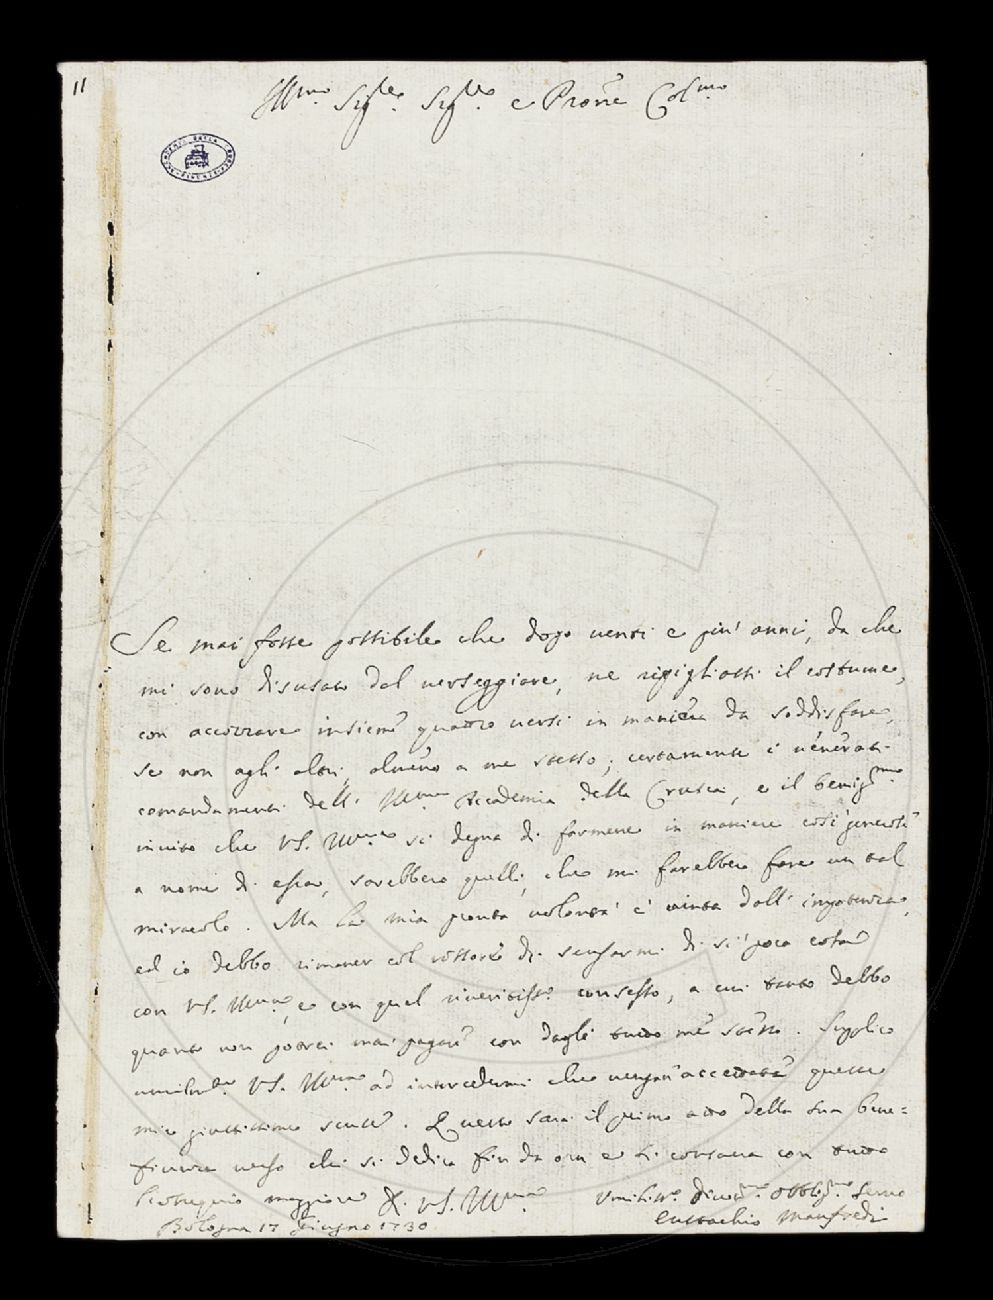 11
Ill.mo Sig.re Sig.re e Pron̄e Col.mo
Se mai fosse possibile che dopo venti e piu' anni, da che
mi sono disusato dal verseggiare, ne ripigliassi il costume,
con accozzare insieme quattro versi in maniera da soddisfare,
se non agli altri, almeno a me stesso; certamente i venerati
comandamenti dell' Ill.ma Accademia della Crusca, e il benig.mo
invito che VS. Ill.ma si degna di farmene in maniere cosi' generose
a nome di essa, sarebbero quelli, che mi farebbero fare un tal
miracolo. Ma la mia pronta volonta' e' vinta dall' impotenza,
ed io debbo rimaner col rossore di scusarmi di si' poca cosa
con VS. Ill.ma, e con quel riveritiss.o consesso, a cui tanto debbo
quanto non potrei mai pagare con dargli tutto me stesso. Supplico
umilm.te VS. Ill.ma ad intercedermi che vengan' accettate queste
mie giustissime scuse. Questo sara il primo atto della sua bene=
ficenza verso chi si dedica fin da ora e si consacra con tutto
l'ossequio maggiore D. VS. Ill.ma
Umiliss.o Divot.mo Obblig.mo Servo
Bologna 17 Giugno 1730
Eustachio Manfredi